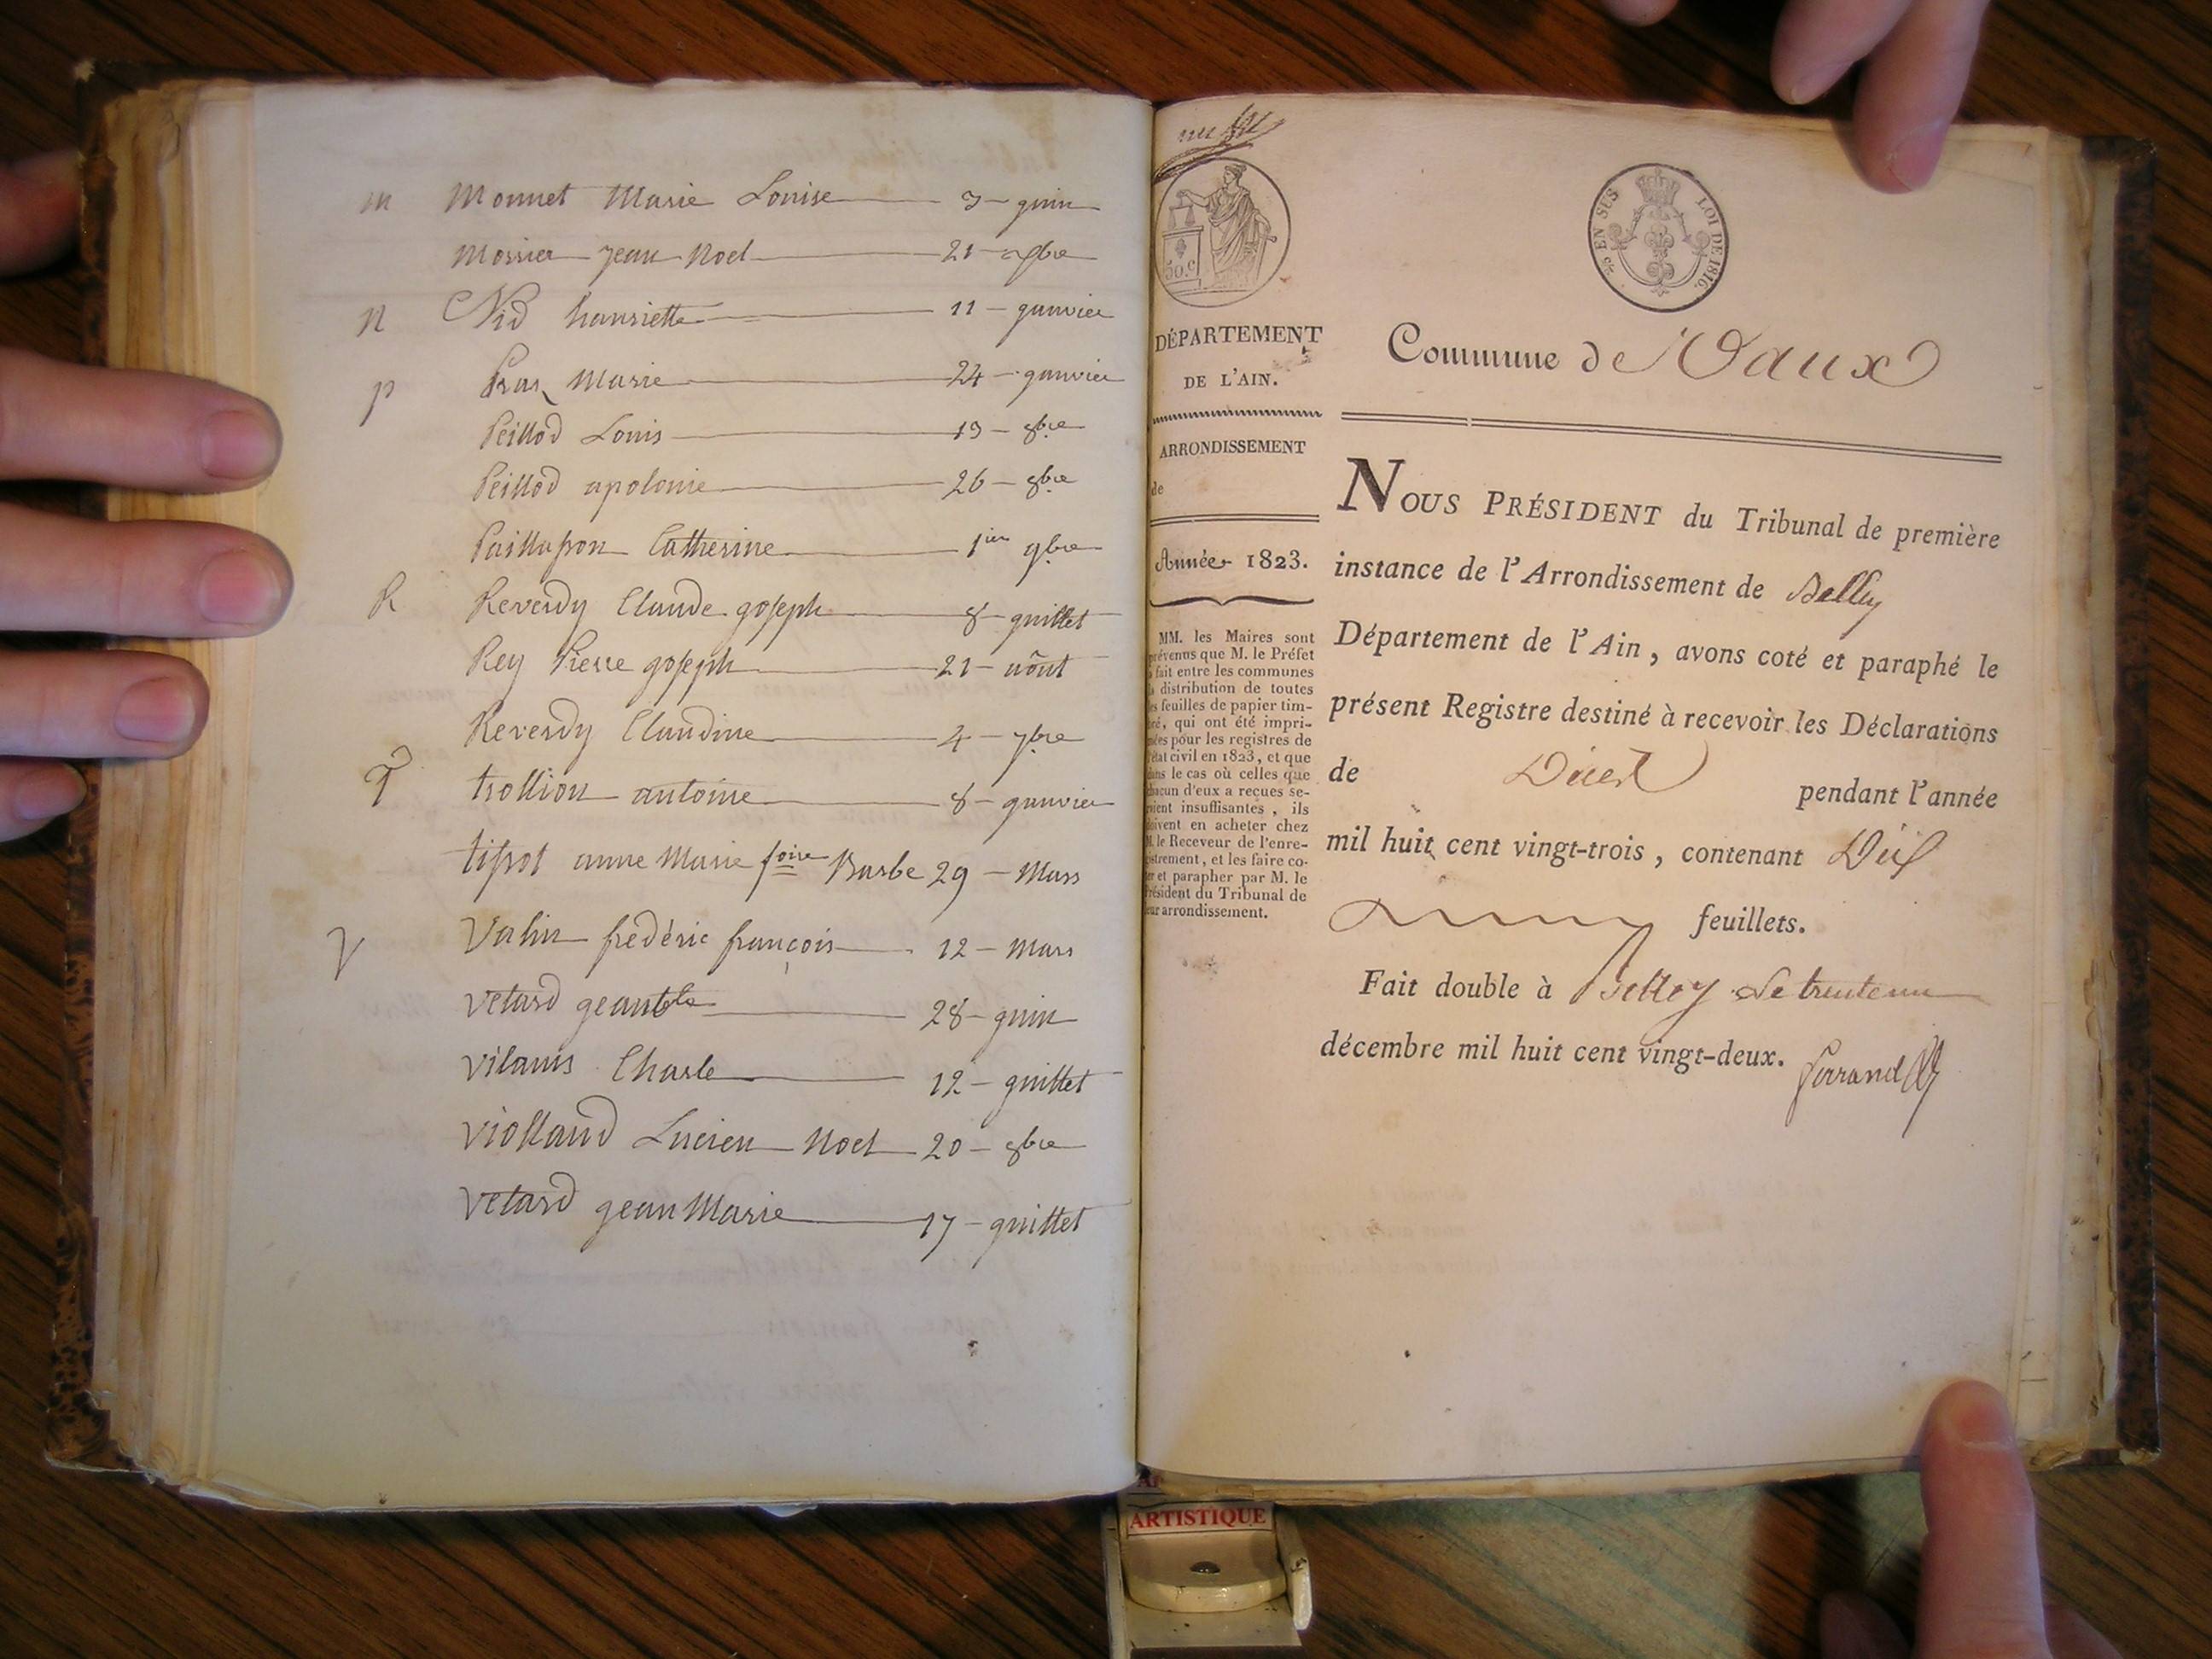 m Monnet Marie Louise 3 - guin
Mossier jean Noel 21 - 
N Nid hanriette 11 - ganvier
p Pras Marie 24 - ganvier
Peillod Louis 13 - 8bre
Peillod apolonie 26 - 8bre
Paillasson Catherine 1ier 9bre
R Reverdy Claude goseph 8 - guillet
Rey Pierre goseph 21 - aôut
Reverdy Claudine 4 - 7bre
T trollion antoine 8 - ganvier
tissot anne Marie foise Barbe 29 - Mars
V Valin frédéric françois 12 - Mars
Vetard gean 28 - guin
Vilanis Charle 12 - guillet
Violland Lucien Noel 20 - 8bre
Vetard gean Marie 17 - guillet
50.c
EN SUS LOI DE 1816.
DÉPARTEMENT
DE L'AIN.
ARRONDISSEMENT
de
Année 1823.
MM. les Maires sont
prévenus que M. le Préfet
a fait entre les communes
la distribution de toutes
les feuilles de papier tim-
bré, qui ont été impri-
mées pour les registres de
l'état civil en 1823, et que
dans le cas où celles que
chacun d'eux a reçues se-
roient insuffisantes, ils
doivent en acheter chez
M. le Receveur de l'enre-
gistrement, et les faire co-
ter et parapher par M. le
Président du Tribunal de
leur arrondissement.
Commune de Vaux
NOUS PRÉSIDENT du Tribunal de première
instance de l'Arrondissement de Belley
Département de l'Ain, avons coté et paraphé le
présent Registre destiné à recevoir les Déclarations
de Décès pendant l'année
mil huit cent vingt-trois, contenant Dix
feuillets.
Fait double à Belley Le trente un
décembre mil huit cent vingt-deux.
ARTISTIQUE